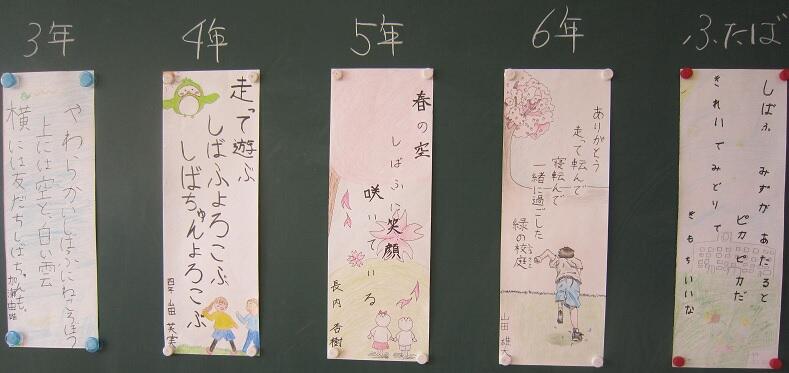 3年
やわらかいしばふにねころぼう
上には空と、白い雲
横には友だちしばちゃんも。
4年
走って遊ぶ
しばふよろこぶ
しばちゅんよろこぶ
四年 山田 芙実
5年
春の空
しばふに笑顔
咲いている
長内 杏樹
6年
ありがとう
走って転んで
寝転んで
一緒に過ごした
緑の校庭
山田 雄大
ふたば
しばふ みずが あたると
ピカピカだ
きれいで みどりで
きもちいいな